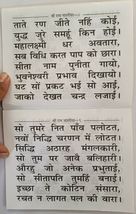 श्री राम चालीसा
ताते रण जीते नहिं कोई,
युद्ध जुरे समहूं किन होई
महालक्ष्मी धर अवतारा,
सब विधि करत पाप को छारा।
सीता नाम पुनीता गायो,
भुवनेश्वरी प्रभाव दिखायो
घट सों प्रकट भई सो आई,
जाको देखत चन्द्र लजाई।
श्री राम चालीसा
सो तुमरे नित पाँव पलोटत,
नवों निद्धि चरणन में लोटत।
सिद्धि अठारह मंगलकारी,
सो तुम पर जावै बलिहारी।
औरहु जो अनेक प्रभुताई,
सो सीतापति तुमहिं बनाई।
इच्छा ते कोटिन संसारा,
रचत न लागत पल की वारा।